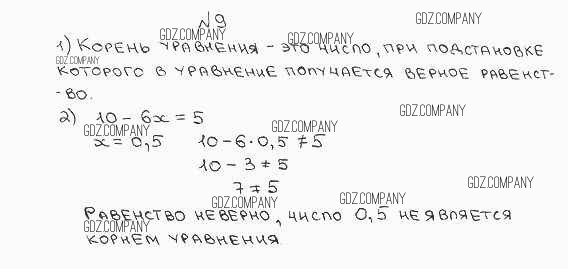 №9
GDZ.COMPANY
GDZ.COMPANY
GDZ.COMPANY
1) Корень уравнения - это число, при подстановке
GDZ.COMPANY
которого в уравнение получается верное равенст-
-во.
GDZ.COMPANY
2) 10 - 6x = 5
GDZ.COMPANY
GDZ.COMPANY
x = 0,5 10 - 6·0,5 ≠ 5
10 - 3 ≠ 5
7 ≠ 5
GDZ.COMPANY
GDZ.COMPANY
GDZ.COMPANY
Равенство неверно, число 0,5 не является
GDZ.COMPANY
корнем уравнения.